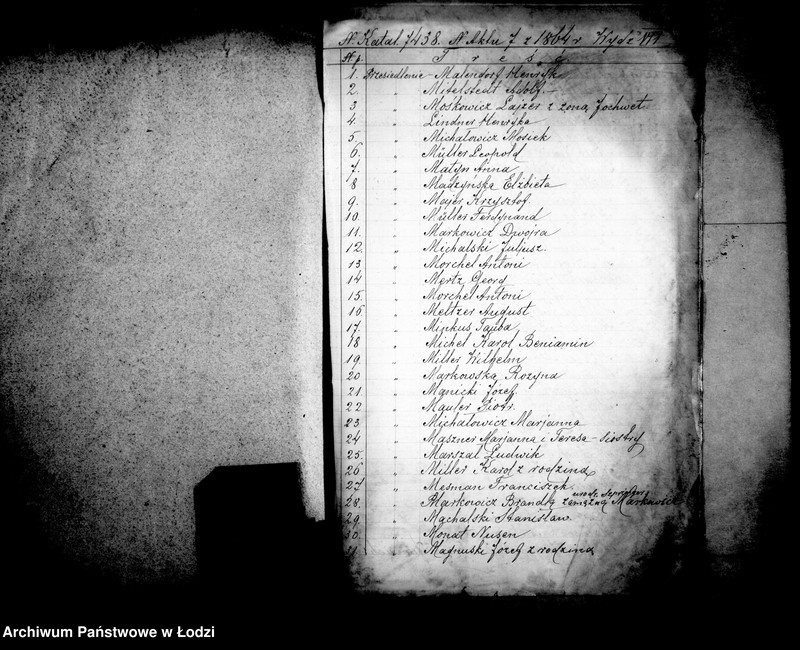 N. Katal. 7438. N Aktu 7 z 1864 r Wydz
N. p. Treść
1. Przesiedlenie - Malendorf Henryk
2. " Mitelstedt Adolf.
3 " Moskowicz Lajzer z żoną Jochwet.
4. " Lindner Henryka
5 " Michałowicz Mosiek
6. " Müller Leopold
7. " Matyn Anna
8 " Madzyńska Elżbieta
9. " Majer Krzysztof
10. " Müller Ferdynand
11. " Markowicz Dwojra
12. " Michalski Juljusz.
13 " Morchel Antoni
14 " Mertz Georg
15. " Morchel Antoni
16 " Meltzer August
17. " Minkus Tauba
18 " Michel Karol Beniamin
19. " Miller Wilhelm
20 " Markowska Rozyna
21. " Manicki Józef
22 " Mauter Piotr.
23. " Michałowicz Marjanna
24 " Maszner Marjanna i Teresa - siostry
25. " Marszal Ludwik
26 " Miller Karol z rodziną
27 " Mesman Franciszek
28. " Markowicz Brandla zamężna Markowicz
29. " Machalski Stanisław.
30. " Monat Nusen
31 " Magnuski Józef z rodziną
Archiwum Państwowe w Łodzi